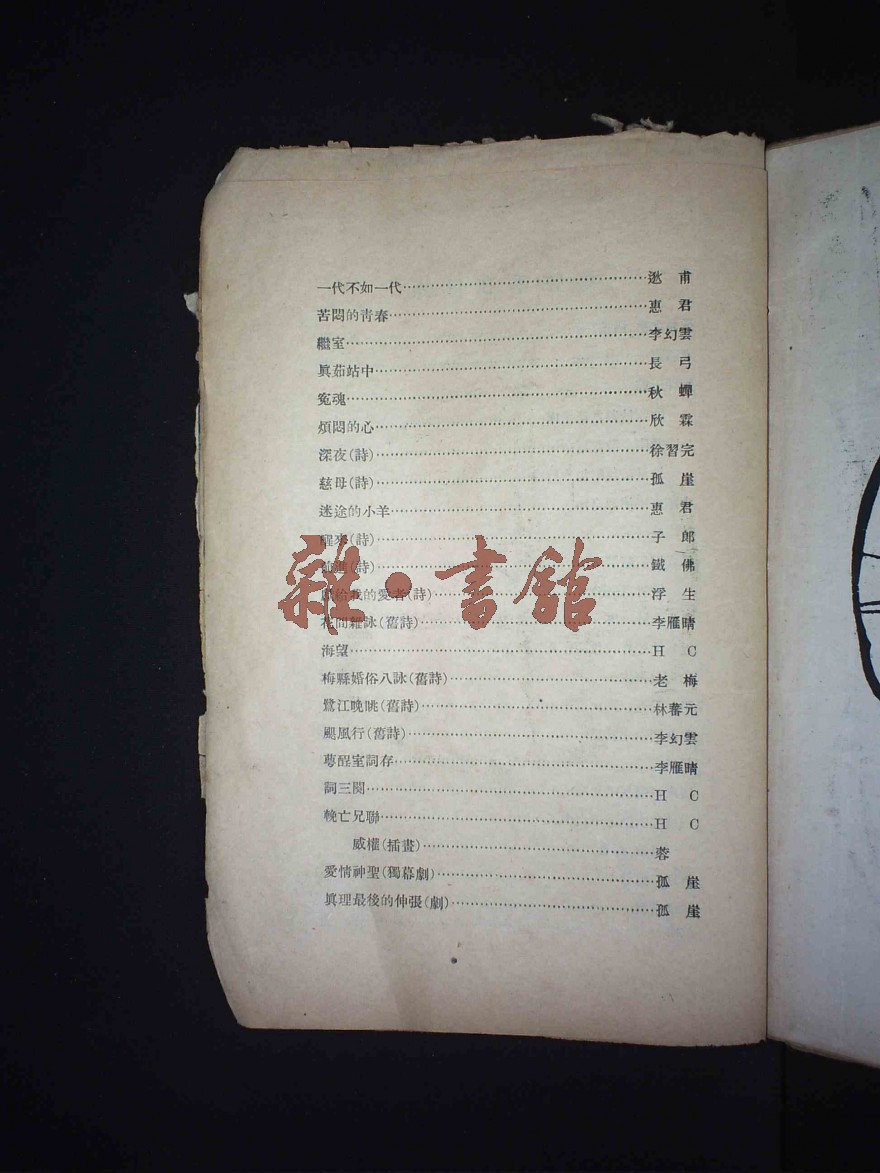 一代不如一代……逖甫
苦悶的靑春……惠君
繼室……李幻雲
眞茹站中……長弓
寃魂……秋蟬
煩悶的心……欣霖
深夜(詩)……徐習完
慈母(詩)……孤崖
迷途的小羊……惠君
醒來(詩)……子郞
(詩)……鐵佛
給我的愛者(詩)……浮生
花間雜詠(舊詩)……李雁晴
海望……H C
梅縣婚俗八詠(舊詩)……老梅
鷺江晚眺(舊詩)……林蕃元
颶風行(舊詩)……李幻雲
夢醒室詞存……李雁晴
詞三闋……H C
輓亡兄聯……H C
威權(插畫)……蓉
愛情神聖(獨幕劇)……孤崖
眞理最後的伸張(劇)……孤崖
雜·書館